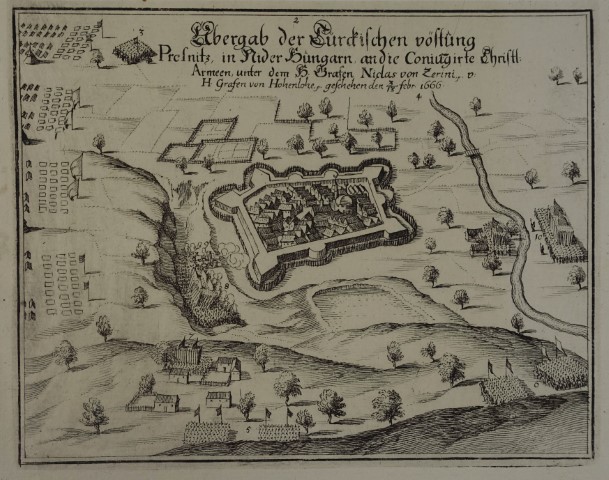 2
Übergab der Türckischen vöstung
Presnitz, in Nider Hungarn an die Coniugirte Christl:
Armeen, unter dem H. Grafen, Niclas von Zerini, v.
H Grafen von Hohenlohe, geschehen den febr 1666
3
4
9
5
6